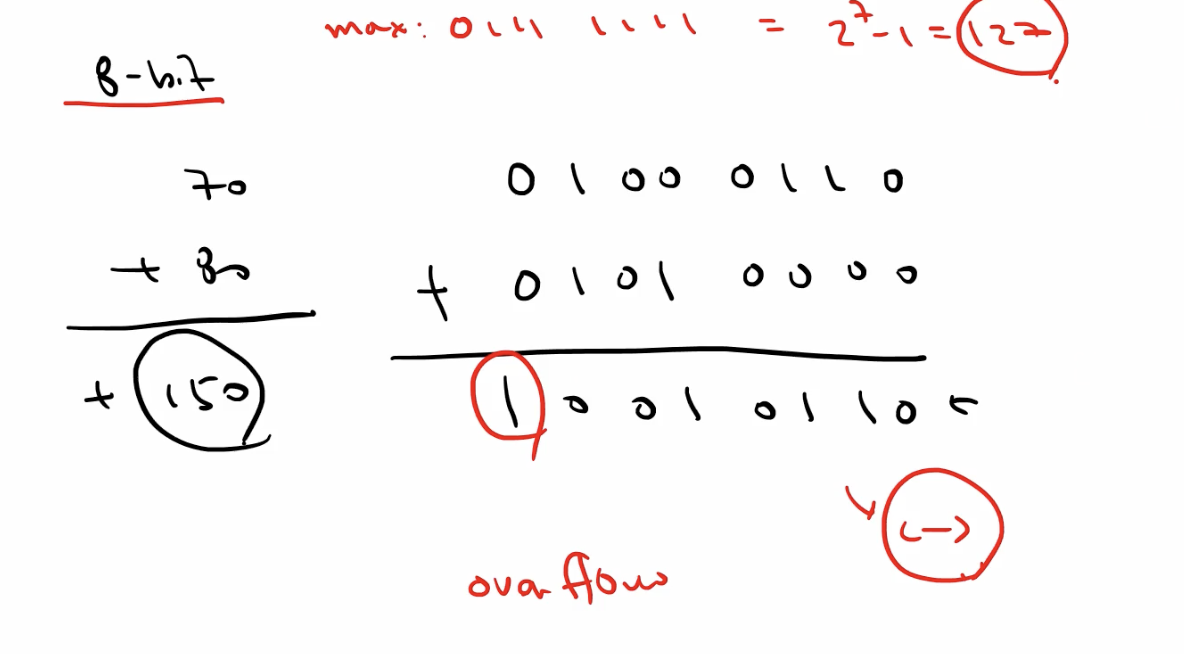 max: 0111 1111 = 2⁷-1 = 127
8-bit
70 0 1 0 0 0 1 1 0
+ 80 + 0 1 0 1 0 0 0 0
+ 150 1 0 0 1 0 1 1 0 ←
(-)
overflow